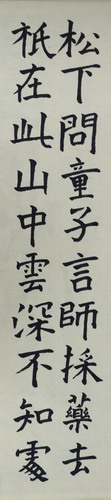 松下問童子言師採藥去
祇在此山中雲深不知處